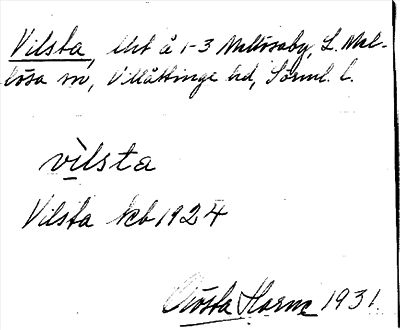 Vilsta, Utb å 1-3 Malmsaby, L. Mal-
lösa sn, Villåttinge hd, Sörml. l.
vìlsta
Vilsta kb 1924
Gösta Harne 1931